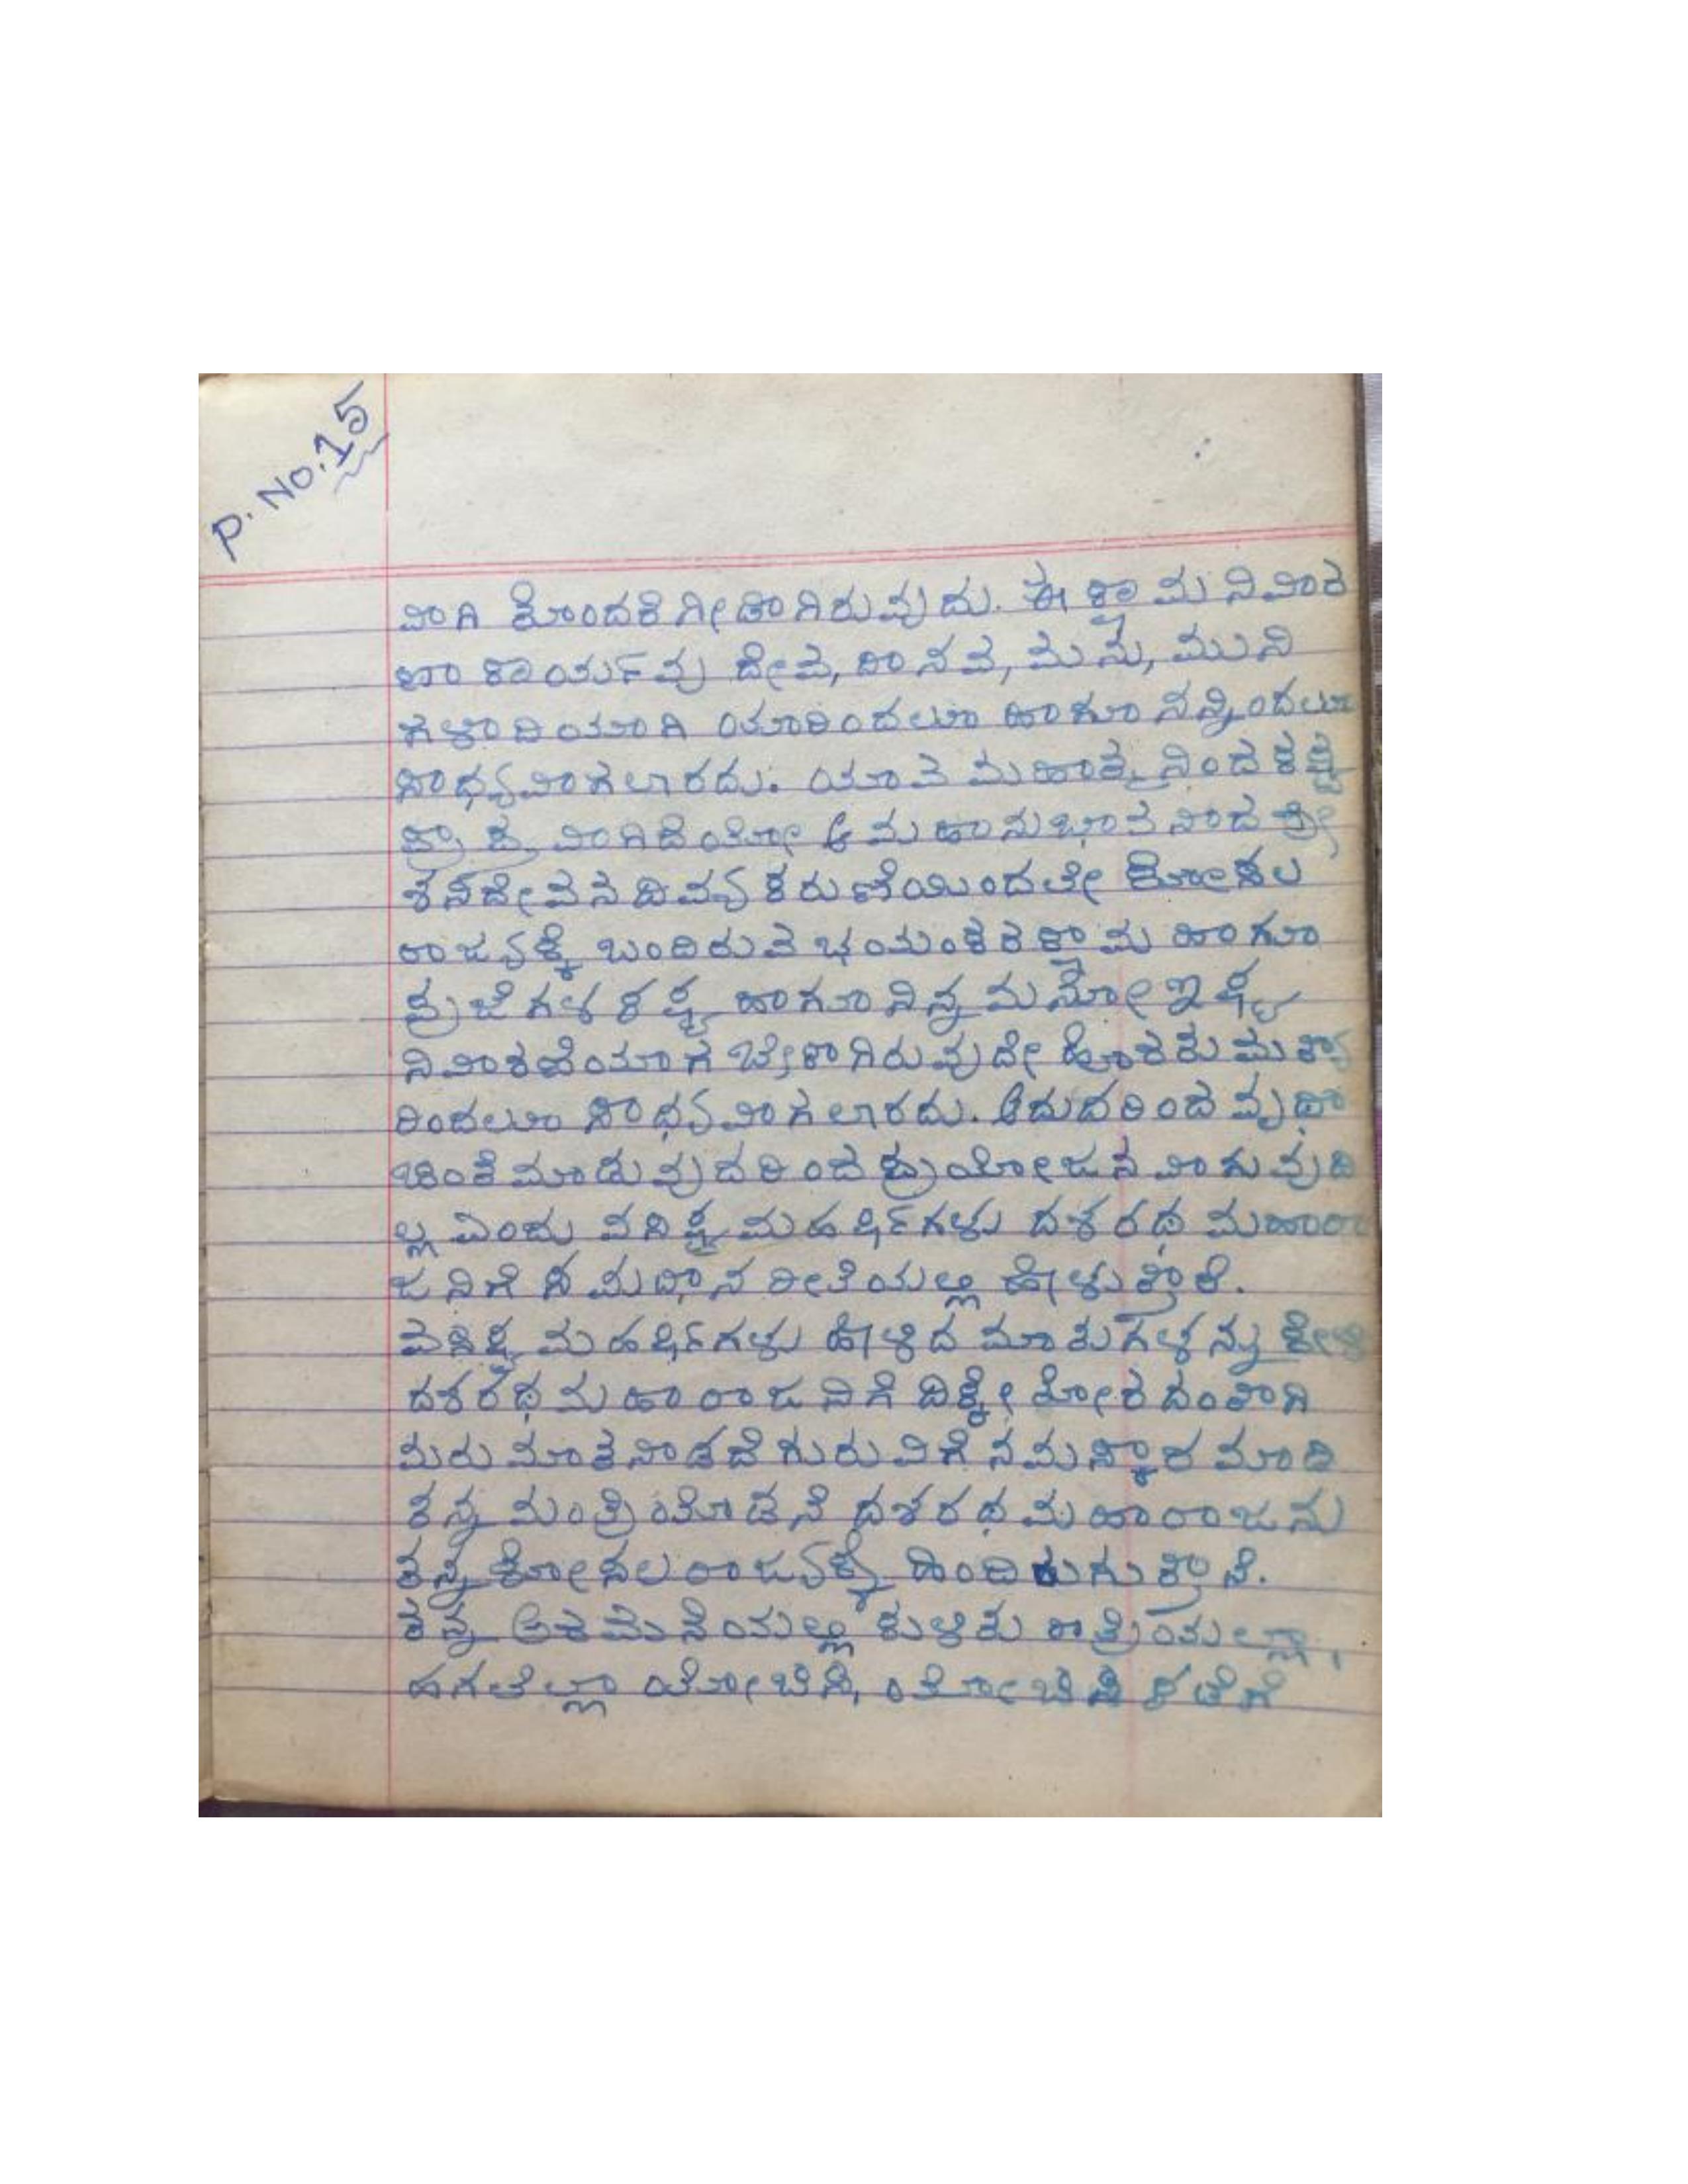 P. No. 15
ವಾಗಿ ತೊಂದರೆಗೀಡಾಗಿರುವುದು. ಈ ಕ್ಷಾಮ ನಿವಾರ
ಣಾ ಕಾರ್ಯವು ದೇವ, ದಾನವ, ಮನು, ಮುನಿ
ಗಳಾದಿಯಾಗಿ ಯಾರಿಂದಲೂ ಹಾಗೂ ನನ್ನಿಂದಲೂ
ಸಾಧ್ಯವಾಗಲಾರದು. ಯಾವ ಮಹಾತ್ಮನಿಂದ ಕಷ್ಟ
ಪ್ರಾಪ್ತವಾಗಿದೆಯೋ ಆ ಮಹಾನುಭಾವನಾದ ಶ್ರೀ
ಶನಿದೇವನ ದಿವ್ಯ ಕರುಣೆಯಿಂದಲೇ ಕೋಸಲ
ರಾಜ್ಯಕ್ಕೆ ಬಂದಿರುವ ಭಯಂಕರ ಕ್ಷಾಮ ಹಾಗೂ
ಪ್ರಜೆಗಳ ಕಷ್ಟ ಹಾಗೂ ನಿನ್ನ ಮನೋಇಕ್ಷ್ಯ
ನಿವಾರಣೆಯಾಗ ಬೇಕಾಗಿರುವುದೇ ಹೊರತು ಮತ್ಯಾ
ರಿಂದಲೂ ಸಾಧ್ಯವಾಗಲಾರದು. ಆದುದರಿಂದ ವೃಥಾ
ಚಿಂತೆ ಮಾಡುವುದರಿಂದ ಪ್ರಯೋಜನವಾಗುವುದಿ
ಲ್ಲ ಎಂದು ವಸಿಷ್ಠ ಮಹರ್ಷಿಗಳು ದಶರಥ ಮಹಾರಾ
ಜನಿಗೆ ಸಮಧಾನ ರೀತಿಯಲ್ಲಿ ಹೇಳುತ್ತಾರೆ.
ವಶಿಷ್ಠ ಮಹರ್ಷಿಗಳು ಹೇಳಿದ ಮಾತುಗಳನ್ನು ಕೇಳಿ
ದಶರಥ ಮಹಾರಾಜನಿಗೆ ದಿಕ್ಕೇ ತೋರದಂತಾಗಿ
ಮರು ಮಾತನಾಡದೆ ಗುರುವಿಗೆ ನಮಸ್ಕಾರ ಮಾಡಿ
ತನ್ನ ಮಂತ್ರಿಯೊಡನೆ ದಶರಥ ಮಹಾರಾಜನು
ತನ್ನ ಕೋಸಲ ರಾಜ್ಯಕ್ಕೆ ಹಿಂದಿರುಗುತ್ತಾನೆ.
ತನ್ನ ಅರಮನೆಯಲ್ಲಿ ಕುಳಿತು ರಾತ್ರಿಯಲ್ಲಾ,
ಹಗಲೆಲ್ಲಾ ಯೋಚಿಸಿ, ಯೋಚಿಸಿ ಕಡೆಗೆ